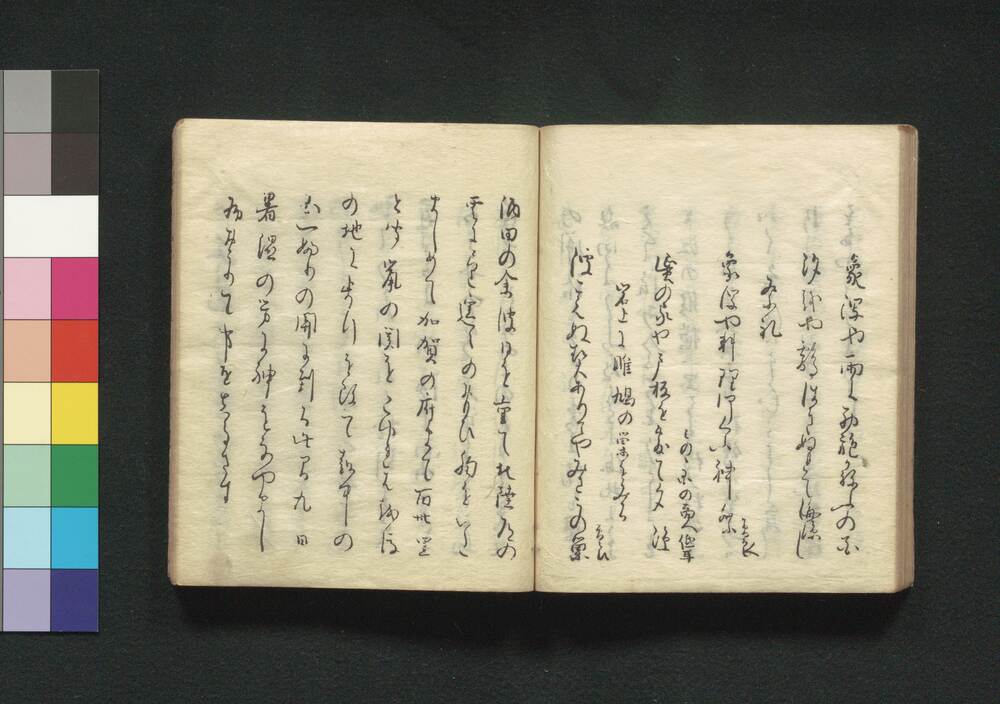 象潟や雨に西施かねふの花
汐越や鶴はきぬれて海涼し
祭礼
象潟や料理何くふ神祭 曽良
蜑の家や戸板を敷て夕涼
みのゝ国の商人 低耳
岩上に雎鳩の巣をみる
波こえぬ契ありてやみさこの巣
曽良
酒田の余波日を重て北陸道の
雲に望遥々のおもひ胸をいた
ましめて加賀の府まて百卅里
と聞鼠の関をこゆれは越後
の地に歩行を改て越中の
国一ふりの関に到る此間九日
暑湿の労に神をなやまし
病おこりて事をしるさす